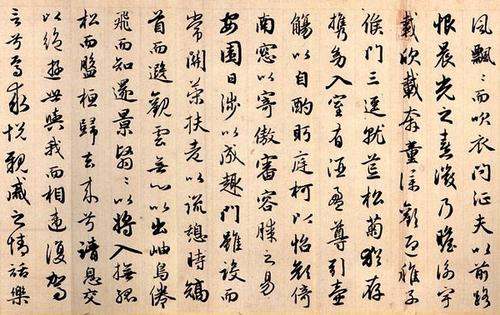 風飄〻而吹衣問征夫以前路
恨晨光之熹微乃瞻衡宇
載欣載奔童僕歡迎稚子
候門三逕就荒松菊猶存
携幼入室有酒盈尊引壺
觴以自酌眄庭柯以怡顏倚
南窓以寄傲審容膝之易
安園日涉以成趣門雖設而
常關策扶老以流憩時矯
首而遐觀雲無心以出岫鳥倦
飛而知還景翳〻以將入撫孤
松而盤桓歸去来兮請息交
以絕遊世與我而相違復駕
言兮焉求悅親戚之情話樂